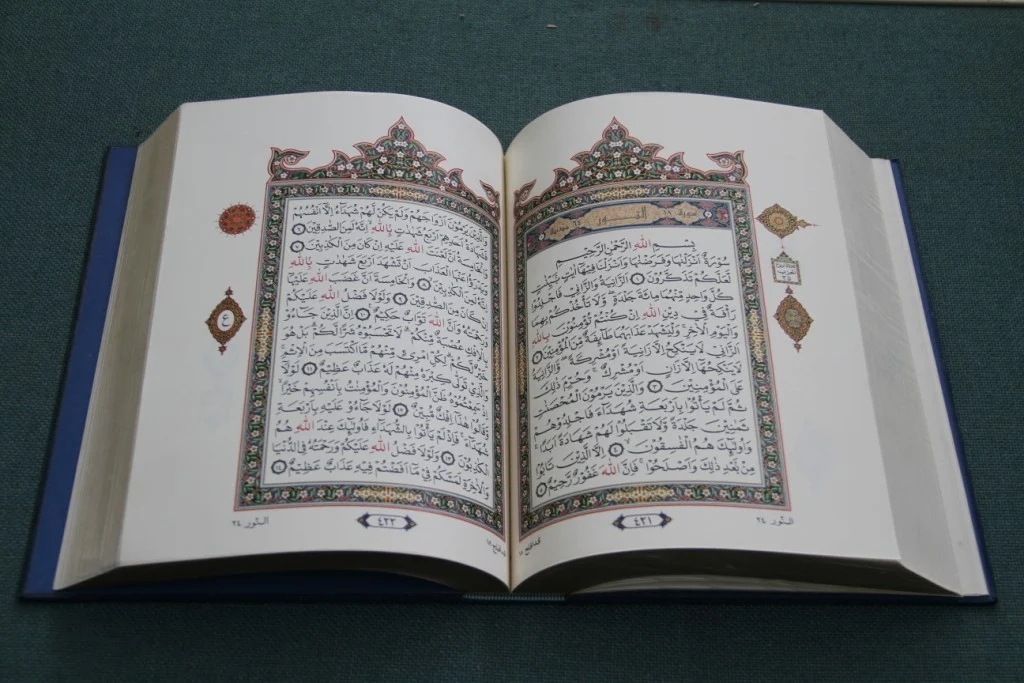 سورة ١٨ النُّور ٦٤ مدنية
بِسْمِ اللهِ الرَّحْمٰنِ الرَّحِيْمِ
سُوْرَةٌ اَنْزَلْنٰهَا وَفَرَضْنٰهَا وَاَنْزَلْنَا فِيْهَا اٰيٰتٍ بَيِّنٰتٍ
لَعَلَّكُمْ تَذَكَّرُوْنَ ۝١ اَلزَّانِيَةُ وَالزَّانِيْ فَاجْلِدُوْا
كُلَّ وَاحِدٍ مِنْهُمَا مِائَةَ جَلْدَةٍ وَلَا تَأْخُذْكُمْ بِهِمَا
رَأْفَةٌ فِيْ دِيْنِ اللهِ اِنْ كُنْتُمْ تُؤْمِنُوْنَ بِاللهِ
وَالْيَوْمِ الْاٰخِرِ وَلْيَشْهَدْ عَذَابَهُمَا طَآئِفَةٌ مِنَ الْمُؤْمِنِيْنَ ۝٢
اَلزَّانِيْ لَا يَنْكِحُ اِلَّا زَانِيَةً اَوْ مُشْرِكَةً وَالزَّانِيَةُ
لَا يَنْكِحُهَا اِلَّا زَانٍ اَوْ مُشْرِكٌ وَحُرِّمَ ذٰلِكَ
عَلَى الْمُؤْمِنِيْنَ ۝٣ وَالَّذِيْنَ يَرْمُوْنَ الْمُحْصَنٰتِ
ثُمَّ لَمْ يَأْتُوْا بِاَرْبَعَةِ شُهَدَآءَ فَاجْلِدُوْهُمْ
ثَمٰنِيْنَ جَلْدَةً وَلَا تَقْبَلُوْا لَهُمْ شَهَادَةً اَبَدًا
وَاُولٰٓئِكَ هُمُ الْفٰسِقُوْنَ ۝٤ اِلَّا الَّذِيْنَ تَابُوْا
مِنْ بَعْدِ ذٰلِكَ وَاَصْلَحُوْا فَاِنَّ اللهَ غَفُوْرٌ رَحِيْمٌ ۝٥
النّور ٢٤
٤٢١
وَالَّذِيْنَ يَرْمُوْنَ اَزْوَاجَهُمْ وَلَمْ يَكُنْ لَهُمْ شُهَدَآءُ اِلَّا اَنْفُسُهُمْ
فَشَهَادَةُ اَحَدِهِمْ اَرْبَعُ شَهٰدٰتٍ بِاللهِ اِنَّهُ لَمِنَ الصّٰدِقِيْنَ ۝٦
وَالْخَامِسَةُ اَنَّ لَعْنَتَ اللهِ عَلَيْهِ اِنْ كَانَ مِنَ الْكٰذِبِيْنَ ۝٧
وَيَدْرَؤُا عَنْهَا الْعَذَابَ اَنْ تَشْهَدَ اَرْبَعَ شَهٰدٰتٍ بِاللهِ
اِنَّهُ لَمِنَ الْكٰذِبِيْنَ ۝٨ وَالْخَامِسَةَ اَنَّ غَضَبَ اللهِ عَلَيْهَا
اِنْ كَانَ مِنَ الصّٰدِقِيْنَ ۝٩ وَلَوْلَا فَضْلُ اللهِ عَلَيْكُمْ
وَرَحْمَتُهُ وَاَنَّ اللهَ تَوَّابٌ حَكِيْمٌ ۝١٠ اِنَّ الَّذِيْنَ جَآؤُ
بِالْاِفْكِ عُصْبَةٌ مِنْكُمْ لَا تَحْسَبُوْهُ شَرًّا لَكُمْ بَلْ هُوَ
خَيْرٌ لَكُمْ لِكُلِّ امْرِئٍ مِنْهُمْ مَا اكْتَسَبَ مِنَ الْاِثْمِ
وَالَّذِيْ تَوَلّٰى كِبْرَهُ مِنْهُمْ لَهُ عَذَابٌ عَظِيْمٌ ۝١١ لَوْلَا
اِذْ سَمِعْتُمُوْهُ ظَنَّ الْمُؤْمِنُوْنَ وَالْمُؤْمِنٰتُ بِاَنْفُسِهِمْ خَيْرًا
وَقَالُوْا هٰذَا اِفْكٌ مُبِيْنٌ ۝١٢ لَوْلَا جَآؤُ عَلَيْهِ بِاَرْبَعَةِ
شُهَدَآءَ فَاِذْ لَمْ يَأْتُوْا بِالشُّهَدَآءِ فَاُولٰٓئِكَ عِنْدَ اللهِ هُمُ
الْكٰذِبُوْنَ ۝١٣ وَلَوْلَا فَضْلُ اللهِ عَلَيْكُمْ وَرَحْمَتُهُ فِي الدُّنْيَا
وَالْاٰخِرَةِ لَمَسَّكُمْ فِيْ مَآ اَفَضْتُمْ فِيْهِ عَذَابٌ عَظِيْمٌ ۝١٤
ع
النّور ٢٤
٤٢٢